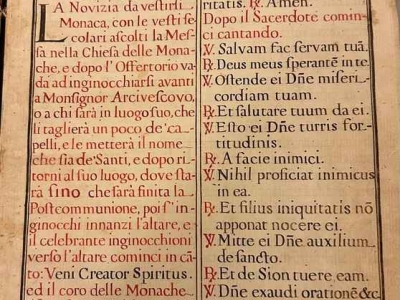 LA Novizia da vestirsi
Monaca, con le vesti se
colari ascolti la Mes
sa nella Chiesa delle Mona
che, e dopo l'Offertorio va
da ad inginocchiarsi avanti
a Monsignor Arcivescovo,
o a chi sarà in luogo suo, che
li taglierà un poco de' ca
pelli, e le metterà il nome
che sia de' Santi, e dopo ri
torni al suo luogo, dove sta
rà sino che sarà finita la
Postcommunione, poi s'in
ginocchi innanzi l'altare, e
il celebrante inginocchioni
verso l'altare cominci in cã
to: Veni Creator Spiritus.
ed il coro delle Monache
ritatis. ℟. Amen.
Dopo il Sacerdote comin
ci cantando.
℣. Salvam fac servam tuã.
℟. Deus meus sperantẽ in te.
℣. Ostende ei Dñe miseri
cordiam tuam.
℟. Et salutare tuum da ei.
℣. Esto ei Dñe turris for
titudinis.
℟. A facie inimici.
℣. Nihil proficiat inimicus
in ea.
℟. Et filius iniquitatis nõ
apponat nocere ei.
℣. Mitte ei Dñe auxilium
de sancto.
℟. Et de Sion tuere eam.
℣. Dñe exaudi orationẽ &c.